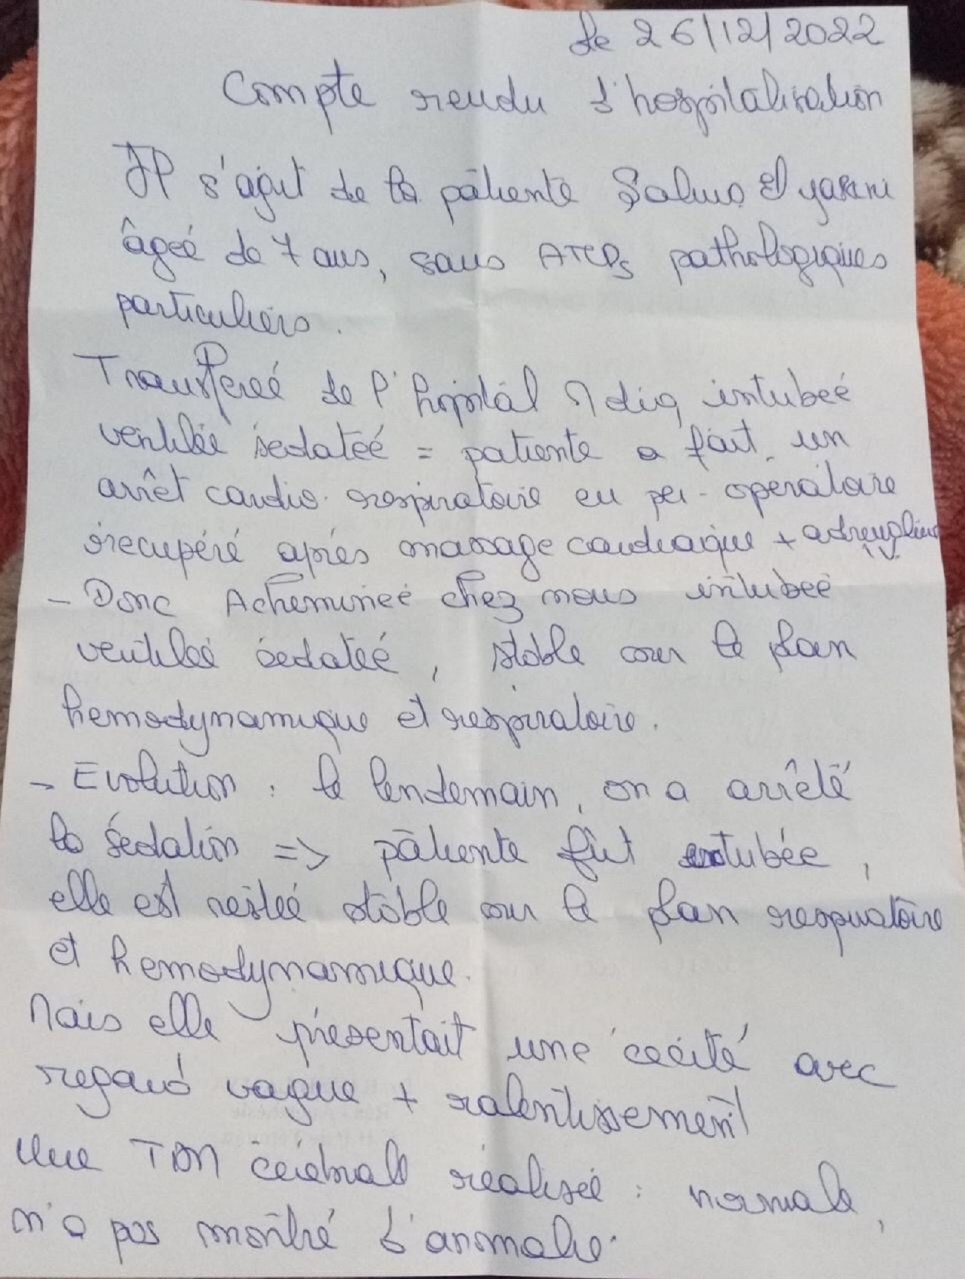 le 26/12/2022
Compte rendu d'hospitalisation
Il s'agit de la patiente Salma El yasini
âgée de 7 ans, sans ATCDs pathologiques
particuliers.
Transférée de l'hôpital Mdiq intubée
ventilée sédatée = patiente a fait un
arrêt cardio-respiratoire en per-opératoire
récupéré après massage cardiaque + adrénaline
IV
- Donc Acheminée chez nous intubée
ventilée sédatée, stable sur le plan
hemodynamique et respiratoire.
- Evolution : le lendemain, on a arrêté
la sédation => patiente fut extubée,
elle est restée stable sur le plan respiratoire
et hemodynamique.
Mais elle présentait une cécité avec
regard vague + ralentissement
Une TDM cérébrale réalisée : normale,
n'a pas montré d'anomalie.